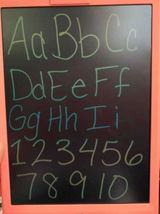 Aa Bb Cc
Dd Ee Ff
Gg Hh Ii
1 2 3 4 5 6
7 8 9 10